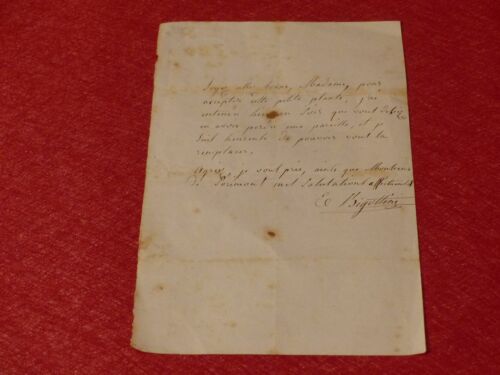 Soyez assez bonne, Madame, pour
accepter cette petite plante, j'ai
entendu hier au soir que vous
en aviez perdu une pareille, et je
suis heureuse de pouvoir vous la
remplacer.
Agréez je vous prie, ainsi que Monsieur
de mes salutations affectueuses
E Bigottini